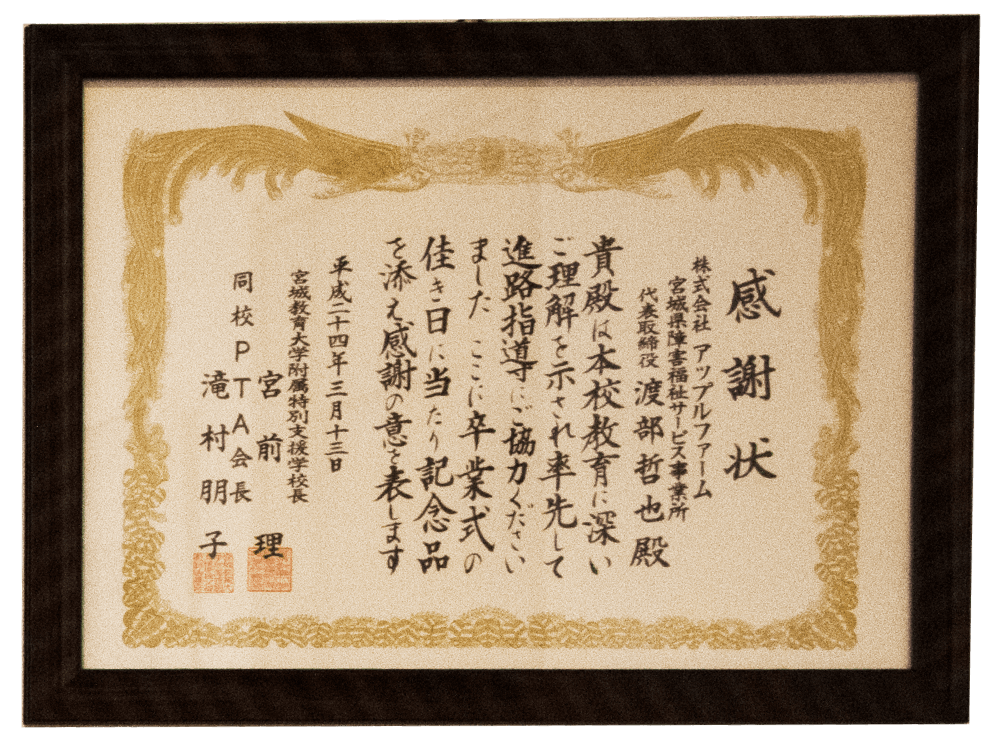 感謝状
株式会社 アップルファーム
宮城県障害福祉サービス事業所
代表取締役 渡部哲也殿
貴殿は本校教育に深い
ご理解を示され率先して
進路指導にご協力ください
ました ここに卒業式の
佳き日に当たり記念品
を添え感謝の意を表します
平成二十四年三月十三日
宮城教育大学附属特別支援学校長
宮前 理
同校PTA会長
滝村朋子